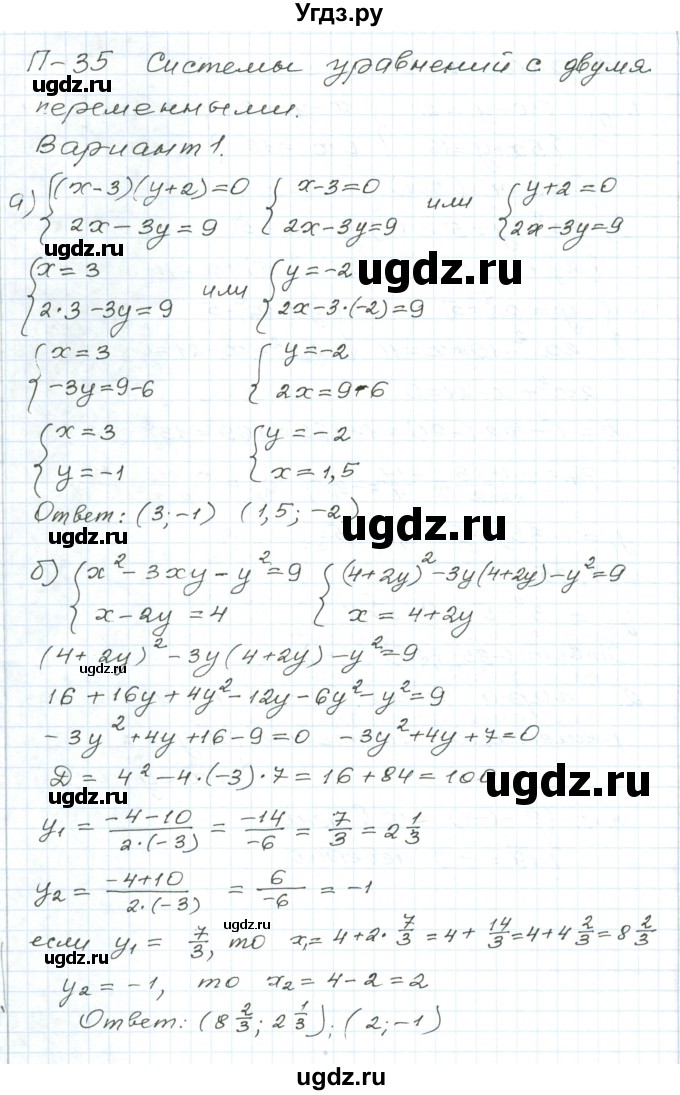 Угдз.ру
П-35 Системы уравнений с двумя
переменными.
Вариант 1.
а) { (x-3)(y+2)=0 { x-3=0 или { y+2=0
2x-3y=9 2x-3y=9 2x-3y=9
ugdz.ru
{ x=3 или { y=-2 ugdz.ru
2·3-3y=9 2x-3·(-2)=9
{ x=3 { y=-2
-3y=9-6 2x=9-6
{ x=3 { y=-2
y=-1 x=1,5
Ответ: (3;-1) (1,5;-2)
ugdz.ru
б) { x²-3xy-y²=9 { (4+2y)²-3y(4+2y)-y²=9
x-2y=4 x=4+2y
(4+2y)²-3y(4+2y)-y²=9
ugdz.ru
16+16y+4y²-12y-6y²-y²=9
-3y²+4y+16-9=0 -3y²+4y+7=0
Д= 4²-4·(-3)·7=16+84=100
ugdz.ru ugdz.ru
y₁ = (-4-10)/(2·(-3)) = -14/-6 = 7/3 = 2 1/3
y₂ = (-4+10)/(2·(-3)) = 6/-6 = -1
ugdz.ru
если y₁ = 7/3, то x₁=4+2·7/3=4+14/3=4+4 2/3=8 2/3
ugdz.ru
y₂=-1, то x₂=4-2=2
Ответ: (8 2/3; 2 1/3); (2;-1)
ugdz.ru
ugdz.ru